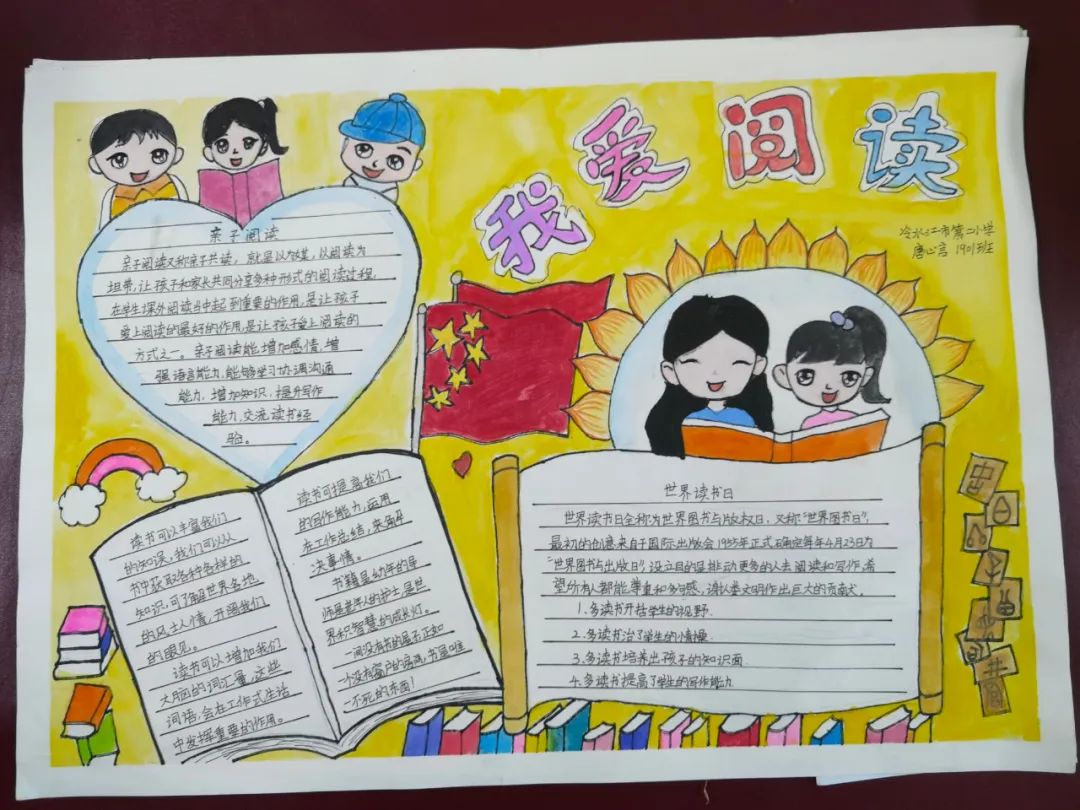 我爱阅读
冷水江市第二小学
唐心言 1901班
亲子阅读
亲子阅读又称亲子共读，就是以为媒，以阅读为
纽带，让孩子和家长共同分享多种形式的阅读过程.
在学生课外阅读当中起到重要的作用，是让孩子
爱上阅读的最好的作用，是让孩子爱上阅读的
方式之一。亲子阅读能，增加感情，增
强语言能力，能够学习协调沟通
能力，增加知识，提升写作
能力，交流读书经
验。
读书可以丰富我们
的知误，我们可以从
书中获取各种各样的
知识，可了解世界名地
的风土人情，开阔我们
的眼见。
读书可以增加我们
大脑的词汇量，这些
词语，会在工作式生活
中发挥重要的作用。
读书可提高我们
的写作能力，运用
在工作总结，来解
决事情。
书籍是幼年的导
师是老年人的护士是世
界积智慧的成长灯。
一间没有书的屋子正如
一个没有窗户的房间，书是唯
一不死的东西！
世界读书日
世界读书日全称为世界图书与版权日，又称"世界图书日"，
最初的创意来自于国际出版会1995年正式确定每年4月23日为
"世界图书与出版日"，设立目的是推动更多的人去阅读和写作，希
望所有人都能尊重和
1.多读书开括学生的视野.
2.多读书治了学生的情操.
3.多读书培养出孩子的知识面.
4.多读书提高了学生的写作能力